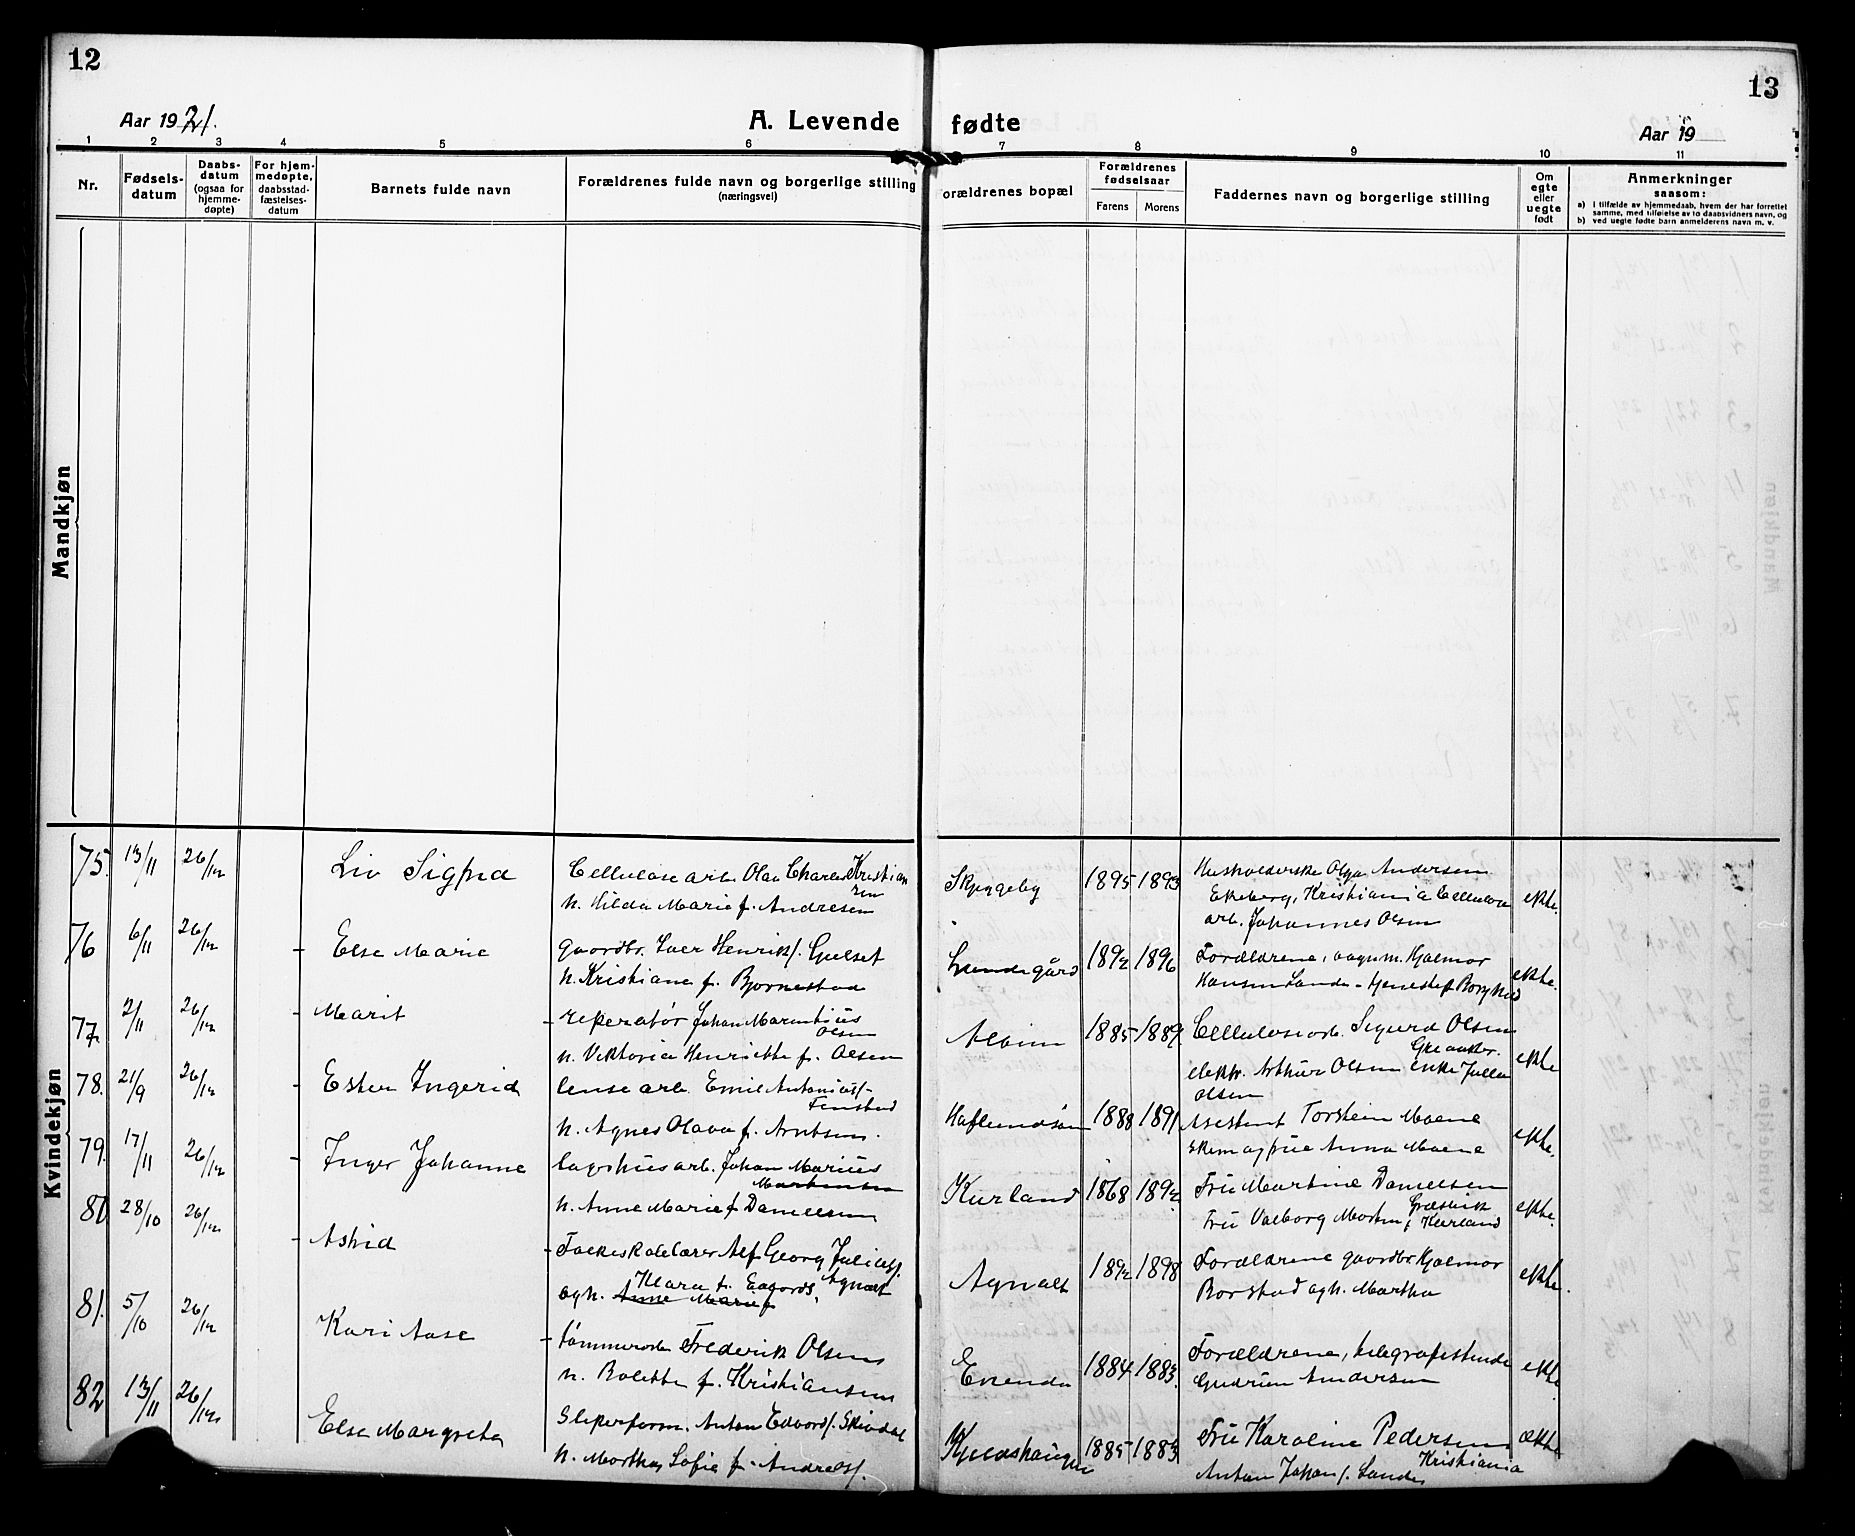 12
13
Aar 1921.
A. Levende fødte
Aar 19
1 2 3 4 5 6 7 8 9 10 11
Nr.
Fødsels-
datum
Daabs-
datum
(ogsaa for
hjemme-
døpte)
For hjem-
medøpte,
daabsstad-
fæstelses-
datum
Barnets fulde navn
Forældrenes fulde navn og borgerlige stilling
(næringsvei)
orældrenes bopæl
Forældrenes
fødselsaar
Farens Morens
Faddernes navn og borgerlige stilling
Om
egte
eller
uegte
født
Anmerkninger
saasom:
a) I tilfælde av hjemmedaab, hvem der har forrettet
samme, med tilføielse av to daabsvidners navn, og
b) ved uegte fødte barn anmelderens navn m. v.
Mandkjøn
Kvindekjøn
75. 13/11 26/12 Liv Sigrid
Cellulosearb. Olav Charles Kristian
sen
h. Hilda Marie f. Andresen
Skjeggeby 1895 1893
Husholderske Olga Andersen
Ekeberg, Kristiania Cellulose
arb. Johannes Olsen
ekte.
76 6/11 26/12 - Else Marie
Gaardbr. Iver Henriks. Gulset
h. Kristiane f. Bjørnestad
Lundegård 1892 1896
Forældrene, vognm. Hjalmar
Hansen Lande
ekte.
77. 2/11 26/12 - Marit
- reperatør Johan Marentius
Olsen
h. Viktoria Henriette f. Olsen
Alvim 1885 1889
Cellulosearb. Sigurd Olsen
Greaaker.
elektr. Arthur Olsen enke Julla
Olsen
ekte
78. 21/9 26/12 - Ester Ingerid
lensearb. Emil Antonius
Finstad
h. Agnes Olava f. Arntsen.
Haflundsøen 1888 1891
Assistent Torstein Moene
Anna Moene
ekte.
79. 17/11 26/12 - Inger Johanne
lagshusarb. Johan Marius
Martinsen
h. Anne Marie f. Danielsen
Kurland 1868 1892
Fru Martine Danielsen
Græsvik
Fru Valborg Morten, Kurland
ekte.
80. 28/10 26/12 - Astrid
- Folkeskolelærer Alf Georg Julius.
Klara f. Eagards, Agnalt
og h. Anne Marie f
Agnalt 1892 1898
Forældrene gaardbr. Hjalmar
Borstad og h. Martha
ekte.
81. 5/10 26/12 Kari Aase
- tømmerarb. Frederik Olsen
h. Bolette f. Kristiansen
Enenda 1884 1883.
Forældrene, telegrafistinde
Gudrun Andersen
ekte.
82 13/11 26/12 Else Margrete
Sliperform. Anton Edvards. Skivdal
h. Martha Sofie f. Andreass.
1885 1883
Fru Karoline Pedersen
Kristiania
Anton Johans. Sande
ækte